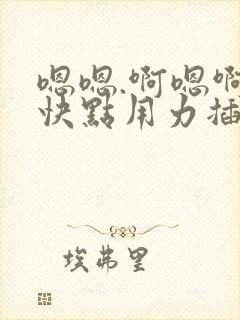 嗯嗯.啊嗯啊
快點用力插
埃弗里